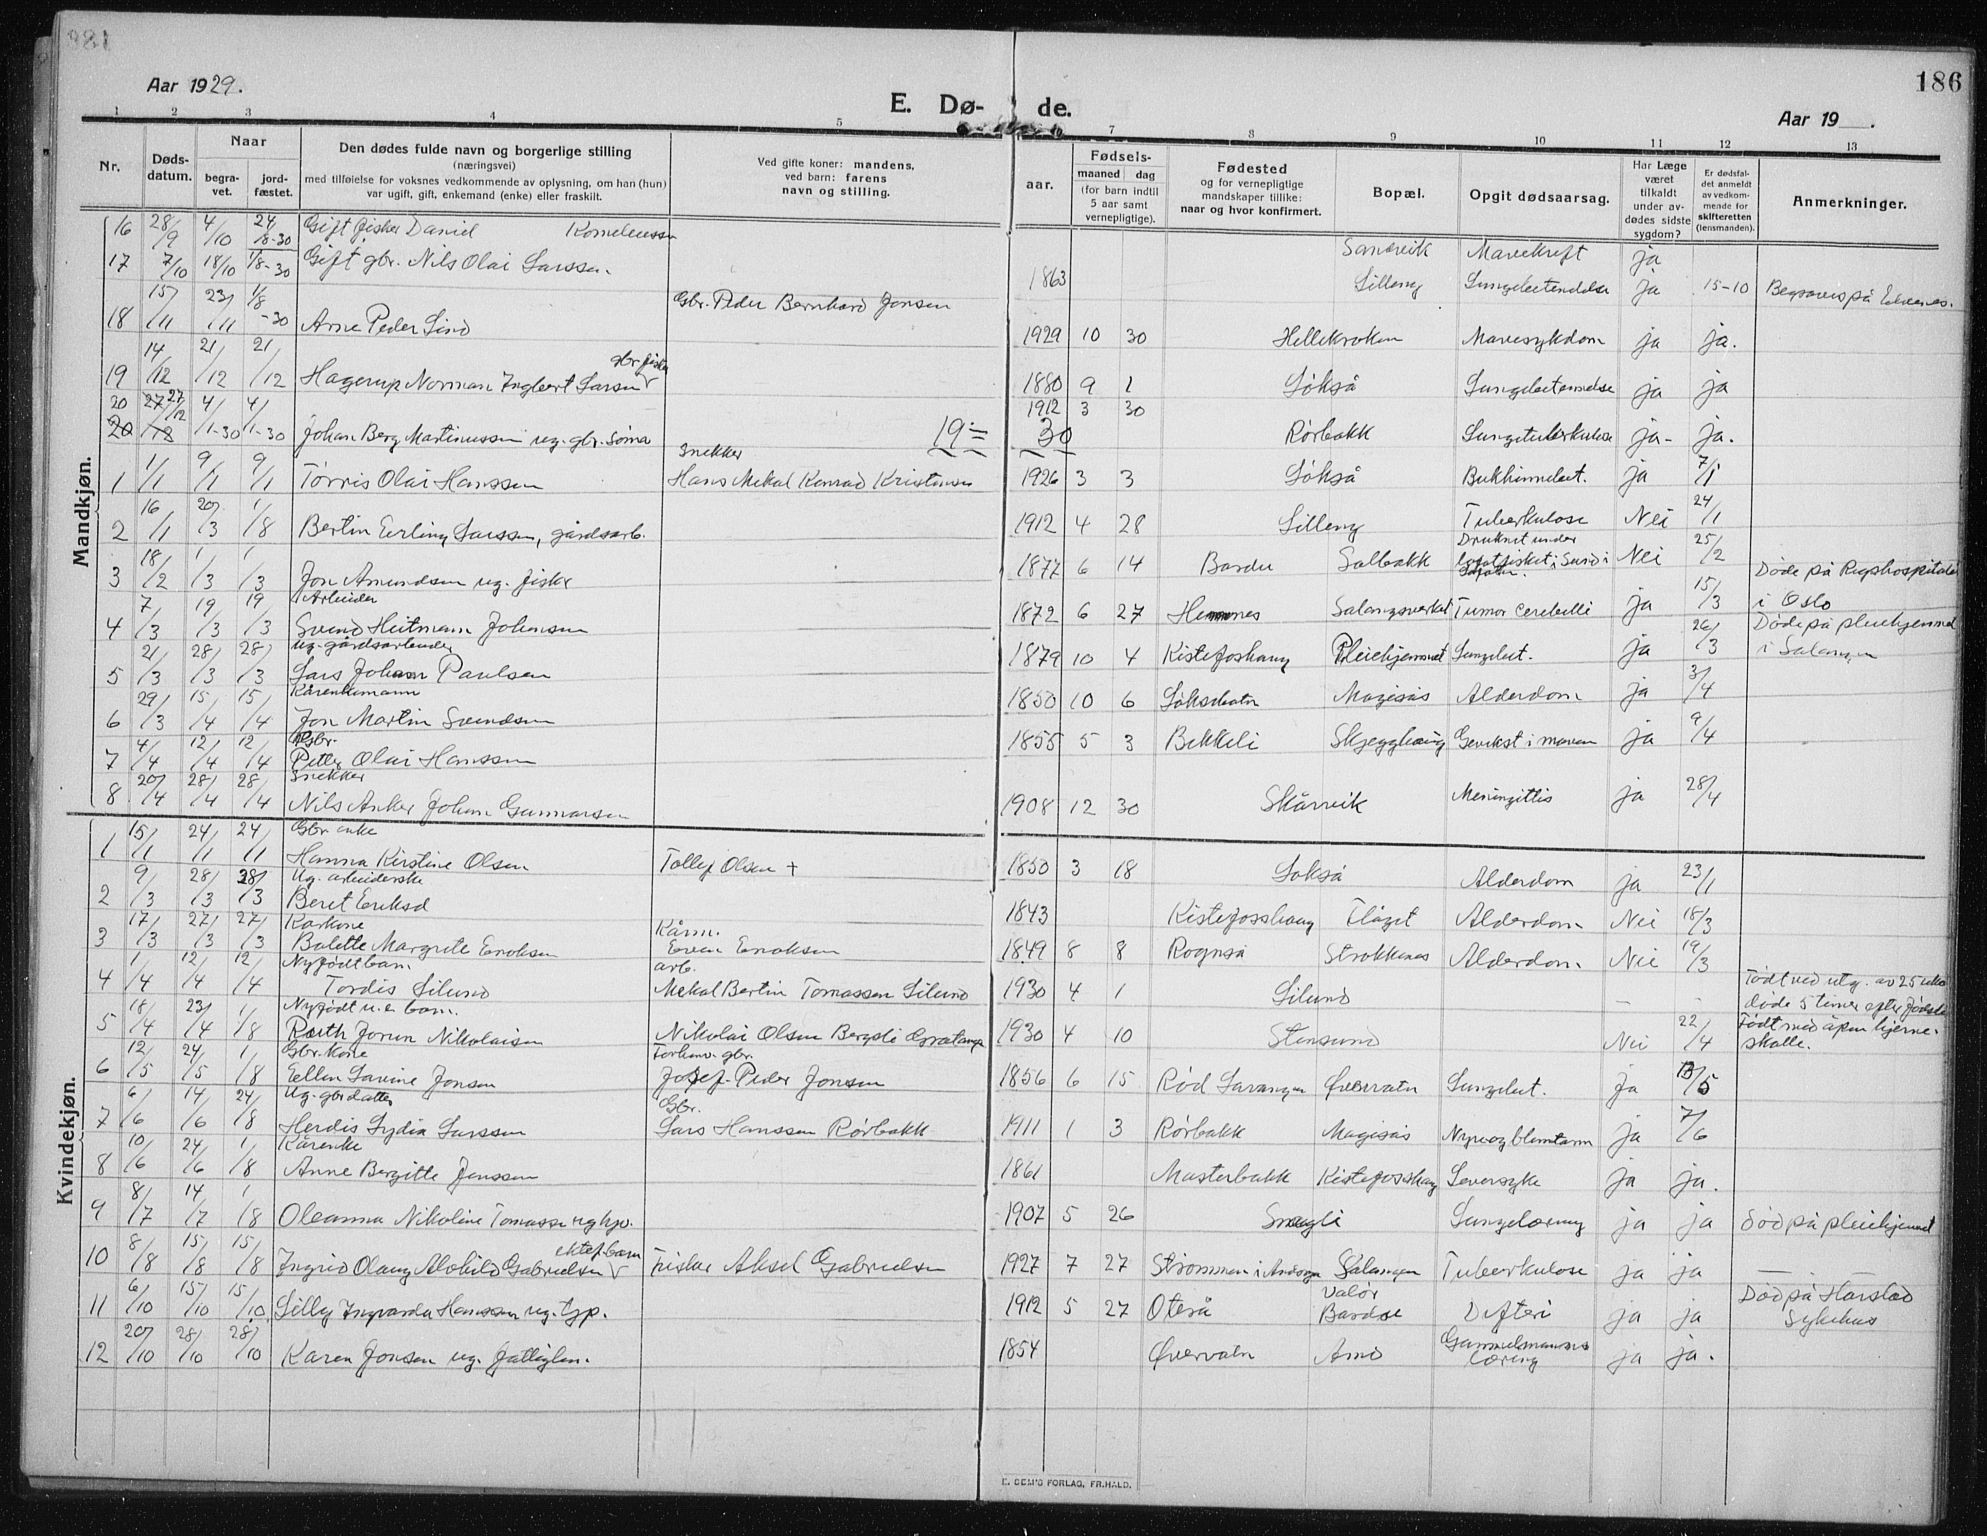 186
Aar 1929.
E. Dø- de.
Aar 19 .
1 2 3 4 5 7 8 9 10 11 12 13
Nr.
Døds-
datum.
Naar
begra-
vet.
jord-
fæstet.
Den dødes fulde navn og borgerlige stilling
(næringsvei)
med tilføielse for voksnes vedkommende av oplysning, om han (hun)
var ugift, gift, enkemand (enke) eller fraskilt.
Ved gifte koner: mandens,
ved barn: farens
navn og stilling.
aar.
Fødsels-
maaned dag
(for barn indtil
5 aar samt
vernepligtige).
Fødested
og for vernepligtige
mandskaper tillike:
naar og hvor konfirmert.
Bopæl.
Opgit dødsaarsag.
Har Læge
været
tilkaldt
under av-
dødes sidste
sygdom?
Er dødsfal-
det anmeldt
av vedkom-
mende for
skifteretten
(lensmanden).
Anmerkninger.
Mandkjøn.
16 28/9 4/10 24/8-30 Gift fisker Daniel Korneliussen Sandvik Mavekreft ja
17 7/10 18/10 1/8-30 Gift gbr. Nils Olai Larssen. 1863 Lilleng Lungebetendelse ja 15-10 Begraves på Elvenes.
18 15/11 23/11 1/8-30 Arne Peder Lind Gbr. Peder Bernhard Jonsen 1929 10 30 Hellekroken Mavesykdom ja ja.
19 14/12 21/12 21/12 Hagerup Norman Ingbert Larsen gbr. fisker 1880 9 1 Løkså Lungebetendelse ja ja
20 27/12 4/1-30 4/1-30 Johan Berg Martinussen ug. gbr. sønn 1912 3 30 Rørbakk Lungetuberkulose ja- ja.
19=30
1 1/1 9/1 9/1 Tørris Olai Hanssen Snekker Hans Mekal Konrad Kristensen 1926 3 3 Løkså Bukhinnebet. ja 7/1
2 16/1 20/3 1/8 Bertin Erling Larssen, gårdsarb. 1912 4 28 Lilleng Tuberkulose Nei 24/1
3 18/2 1/3 1/3 Jon Amundsen ug. fisker 1877 6 14 Bardu Salbakk Druknet under lofotfisket i Sund i Lofoten. Nei 25/2
4 7/3 19/3 19/3 Arbeider Svend Heitmann Johansen 1872 6 27 Hemnes Salangsverket Tumor cerebelli ja 15/3 Døde på Rigshospitalet i Oslo
5 21/3 28/3 28/3 Ug. gårdsarbeider Lars Johan Paulsen 1879 10 4 Kistefoshaug Pleiehjemmet Lungebet. ja 26/3 Døde på pleiehjemmet i Salangen
6 29/3 15/4 15/4 Kårenkemann Jon Martin Svendsen 1850 10 6 Løksebotn Magisås Alderdom ja 3/4
7 4/4 12/4 12/4 Gbr. Petter Olai Hanssen 1855 5 3 Bekkeli Skjegghaug Gevekst i maven ja 9/4
8 20/4 28/4 28/4 Snekker Nils Anker Johan Gunnarsen 1908 12 30 Skårvik Meningittis ja 28/4
Kvindekjøn.
1 15/1 24/1 24/1 Gbr. enke Hanna Kirstine Olsen Tollef Olsen + 1850 3 18 Løkså Alderdom ja 23/1
2 9/3 28/3 28/3 Ug. arbeiderske Beret Eriksd 1843 Kistefosshaug Flåget Alderdom Nei 18/3
3 17/3 27/3 27/3 Karkone Bolette Margrete Enoksen Kårm. Even Enoksen 1849 8 8 Rognså Strokkenes Alderdom Nei 19/3
4 1/4 12/4 12/4 Nyfødt barn Tordis Lilund arb. Mekal Bertin Tomassen Lilund 1930 4 1 Lilund - - Født ved utg. av 25 uke døde 5 timer efter fødsel
5 18/4 23/4 1/8 Nyfødt u. e. barn. Ruth Jorun Nikolaisen Nikolai Olsen Bergsli Gratangen 1930 4 10 Stensund Nei 22/4 Født med åpen hjerne-skalle.
6 12/5 24/5 1/8 Gbr. Kone Ellen Lavine Jonsen Forhenv. gbr. Josef Peder Jonsen 1856 6 15 Rød Lavangen Øvervatn Lungebet. ja 13/5
7 6/6 14/6 24/8 Ug. gbr datter Herdis Lydia Larssen Gbr. Lars Hanssen Rørbakk 1911 1 3 Rørbakk Magisås Nyre og blindtarm ja 7/6
8 10/6 24/6 1/8 Kårenke Anne Bergitte Jenssen 1861 Masterbakk Kistefosshaug Leversyke ja ja.
9 8/7 14/7 1/8 Oleanna Nikoline Tomasse ug hjp. 1907 5 26 Snugli Lungetæring ja ja Død på pleiehjemmet
10 8/8 15/8 15/8 Ingrid Olaug Alvhild Gabrielsen ektef. barn Fisker Aksel Gabrielsen 1927 7 27 Strømmen i Andørja Salangen Tuberkulose ja ja
11 6/10 15/10 15/10 Lilly Ingvarda Hanssen ug. tjp. 1912 5 27 Oterå Valør Bardøe Difteri ja ja Død på Harstad Sykehus
12 20/10 28/10 28/10 Karen Jonsen ug. fattiglem. 1854 Øvervatn And Gammelmanns tæring ja ja.
E. SEM'S FORLAG, FR.HALD.